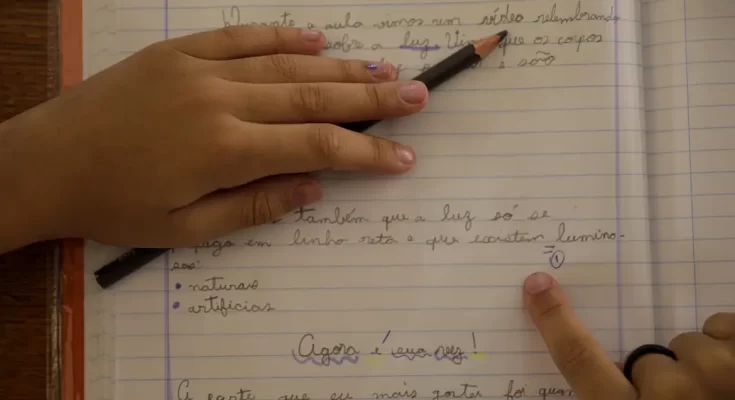 Durante a aula vimos um vídeo relembrando
sobre a luz. Vimos que os corpos
e são
também que a luz só se
propaga em linha reta e que existem lumino-
sos:
1
• naturais
• artificias
Agora é sua vez!
A parte que eu mais gostei foi quan